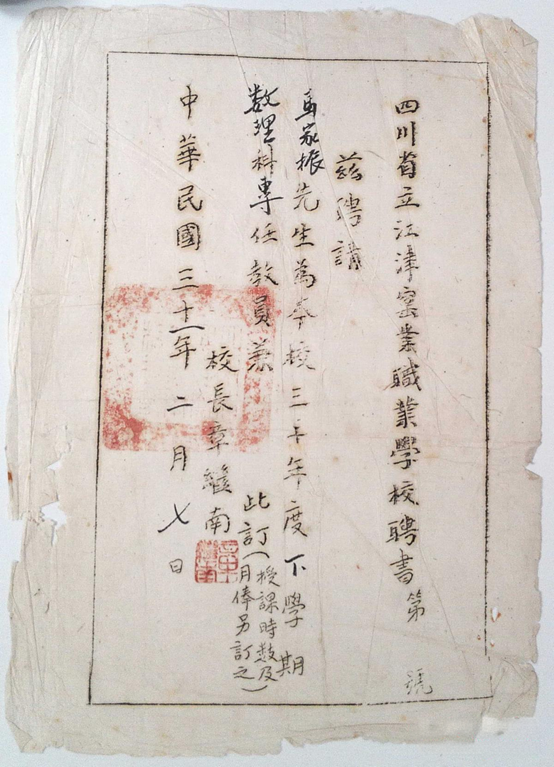 四川省立江津窯業職業學校聘書第 號
茲聘請
馬家振先生為本校三十年度下學期
数理科專任教員兼
此訂(授課時数及月俸另訂之)
校長章繼南
中華民國三十一年二月七日